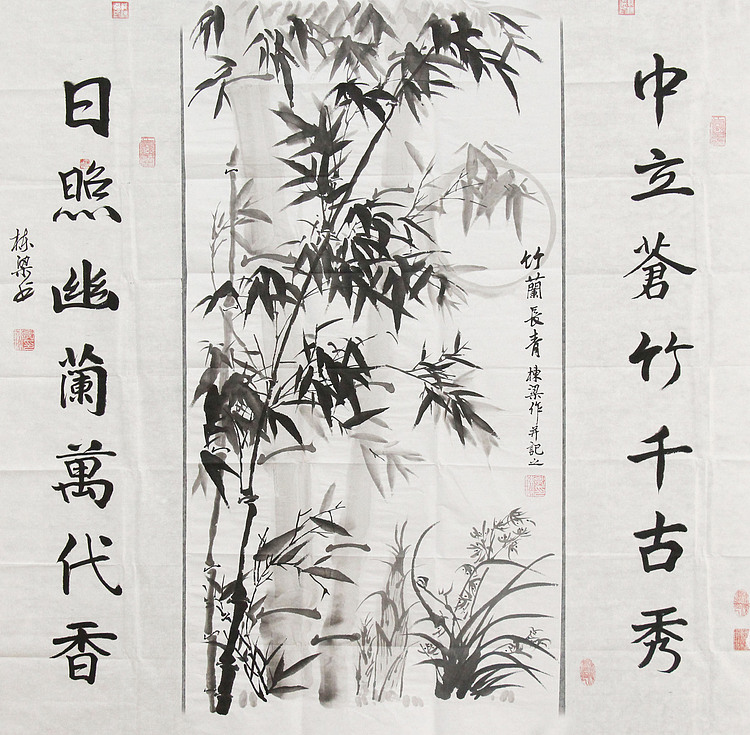 中立蒼竹千古秀
竹蘭長青 棟梁作并記之
日照幽蘭萬代香